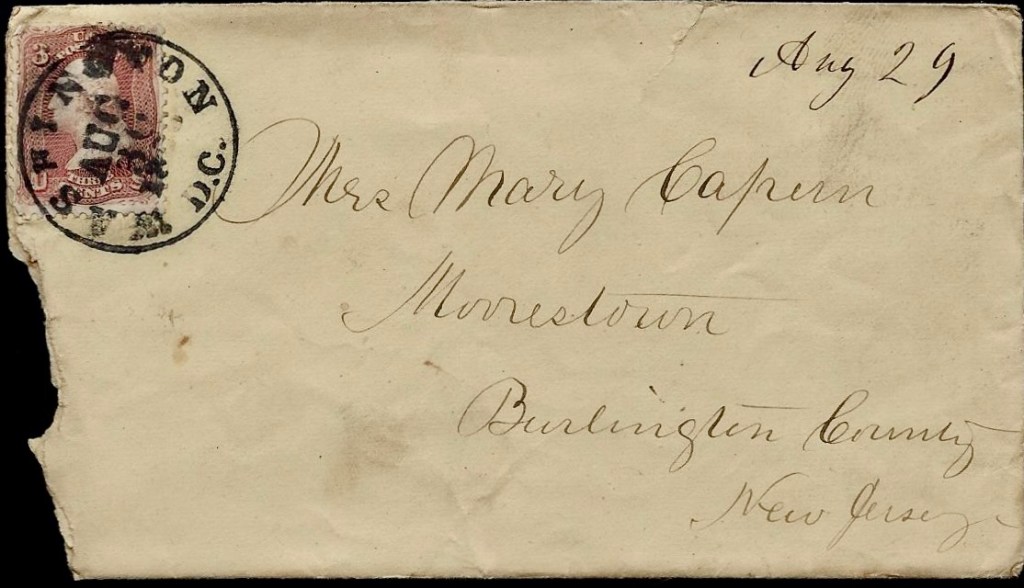 Aug 29
WASHINGTON D.C.
AUG
U
THREE
CENTS
Mrs Mary Capern
Moorestown
Burlington County
New Jersey